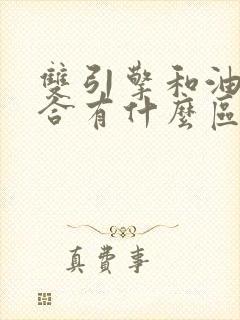 雙引擎和油
合有什麼區
真費事